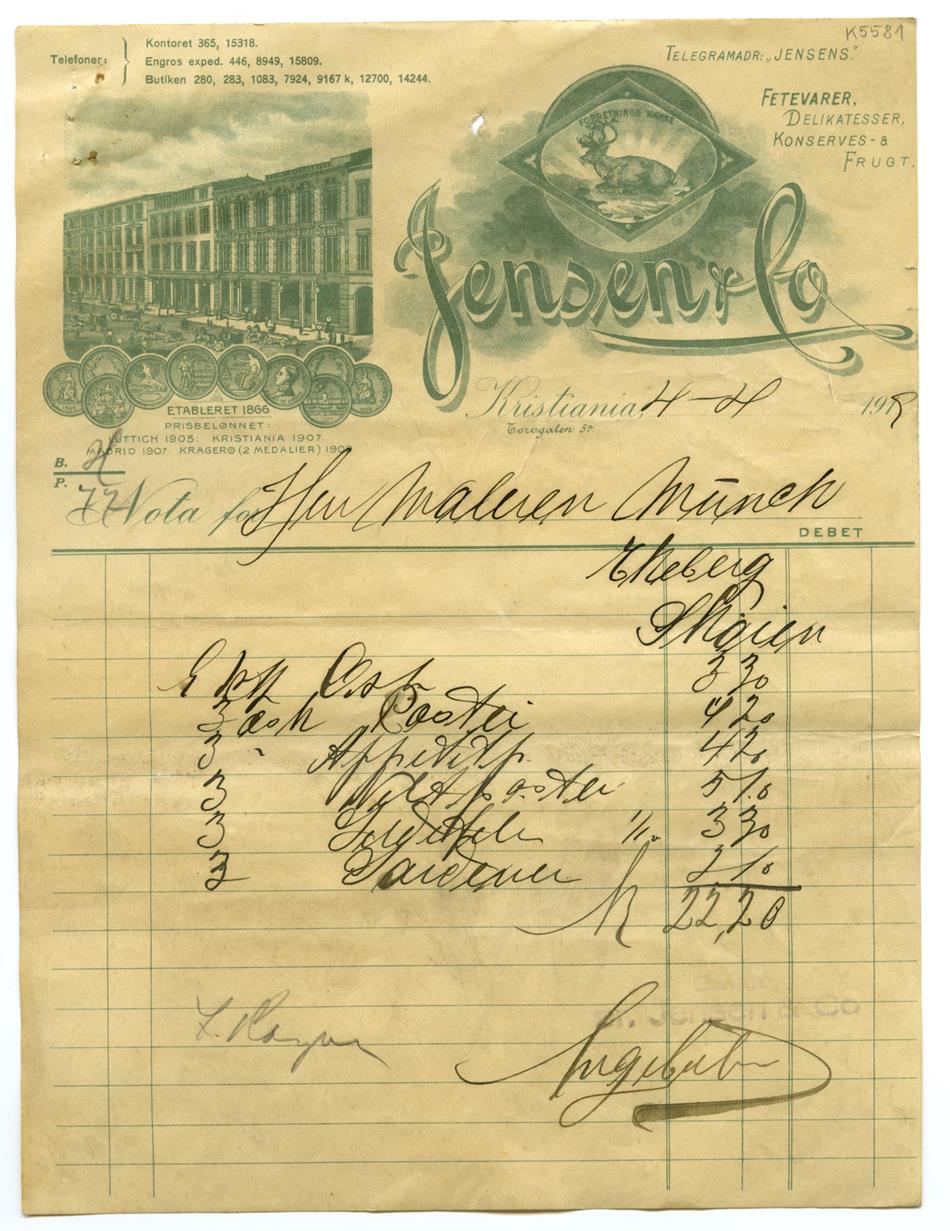 K5581
Telefoner:
Kontoret 365, 15318.
Engros exped. 446, 8949, 15809.
Butiken 280, 283, 1083, 7924, 9167 k, 12700, 14244.
TELEGRAMADR: „JENSENS".
FETEVARER,
DELIKATESSER,
KONSERVES- &
FRUGT.
FORRETNINGS MÆRKE
Jensen & Co
ETABLERET 1866
PRISBELØNNET:
LÜTTICH 1905. KRISTIANIA 1907.
MADRID 1907. KRAGERØ (2 MEDALIER) 190
Kristiania, 4-4 191
Torvgaten 5
B.
P. 77
Nota for Herr Maleren Münch
DEBET
Ekeberg
Skøien
Ost 3 30
3 æsk Postei 4 20
3 " Appetitsp. 4 20
3 Vildtpostei 5 10
3 1/10 3 30
3 Sardener 2 10
Kr 22,20
Jensen & Co